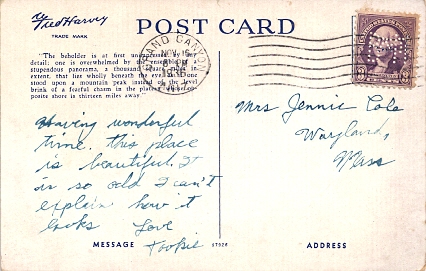 Fred Harvey
TRADE MARK
POST CARD
"The beholder is at first unimpressed by any
detail; one is overwhelmed by the ensemble of a
stupendous panorama, a thousand square miles in
extent, that lies wholly beneath the eye, as if one
stood upon a mountain peak instead of the level
brink of a fearful chasm in the plateau whose op-
posite shore is thirteen miles away."
GRAND CANYON
NOV 15
Having wonderful
time. this place
is beautiful. It
is so odd I can't
explain how it
looks Love
Tookie
Mrs Jennie Cole
Wayland,
Mass
MESSAGE
ADDRESS